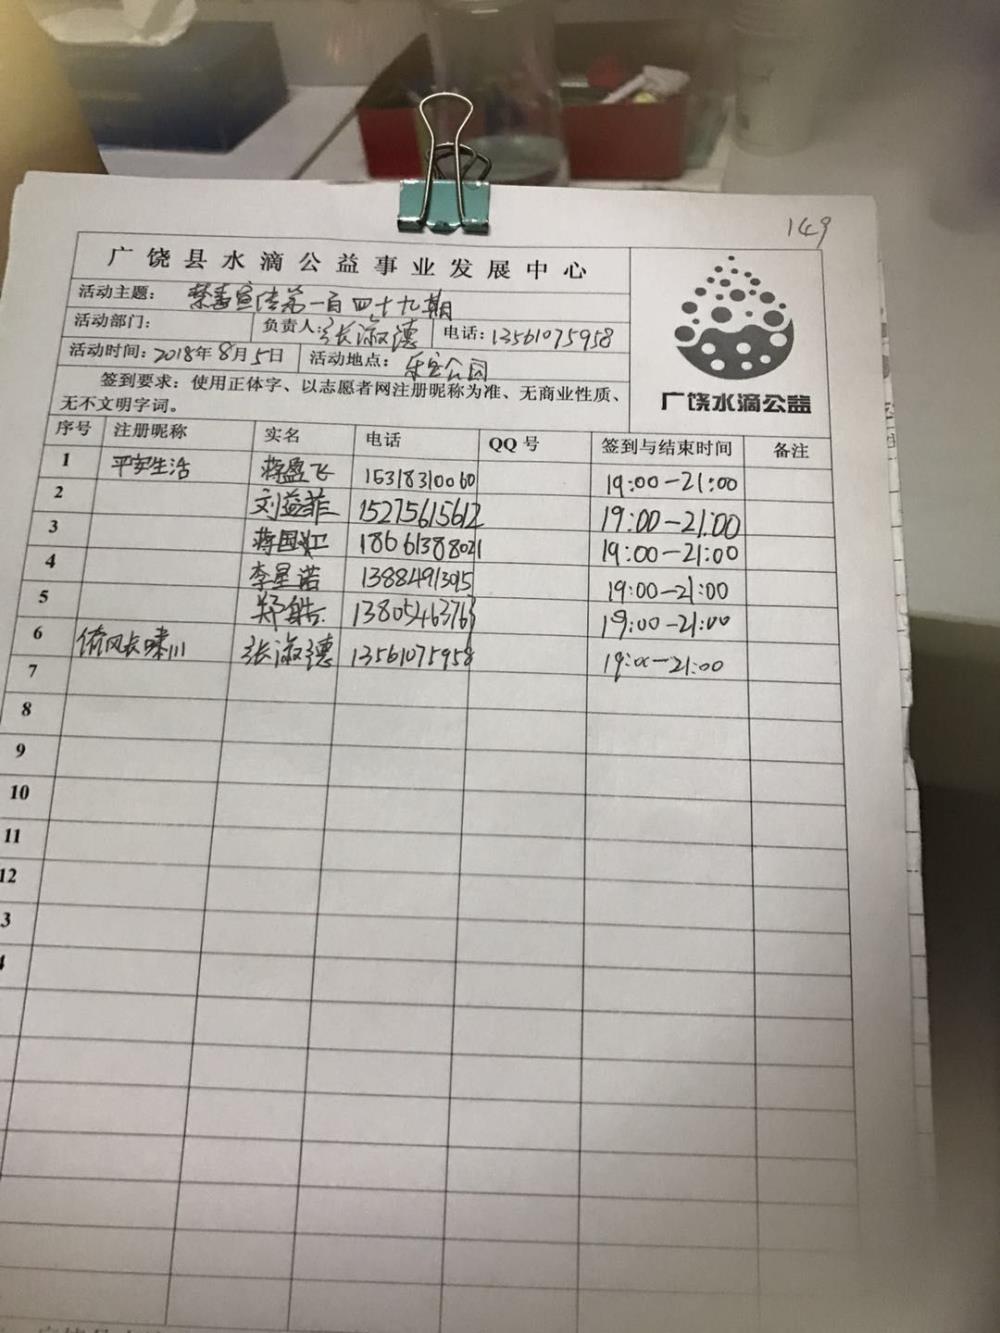 149
广饶县水滴公益事业发展中心
活动主题: 禁毒宣传第一百四十九期
活动部门: 负责人:张淑德 电话:13561075958
活动时间:2018年8月5日 活动地点: 乐安公园
签到要求:使用正体字、以志愿者网注册昵称为准、无商业性质、
无不文明字词。
广饶水滴公益
序号 注册昵称 实名 电话 QQ 号 签到与结束时间 备注
1 平安生活 蒋盈飞 15318310060 19:00-21:00
2 刘益菲 15275615612 19:00-21:00
3 蒋国 18661388021 19:00-21:00
4 李星诺 13884913015 19:00-21:00
5 郑皓 13805463763 19:00-21:00
6 倚风长啸川 张淑德 13561075958 19:00-21:00
7
8
9
10
11
12
3
4